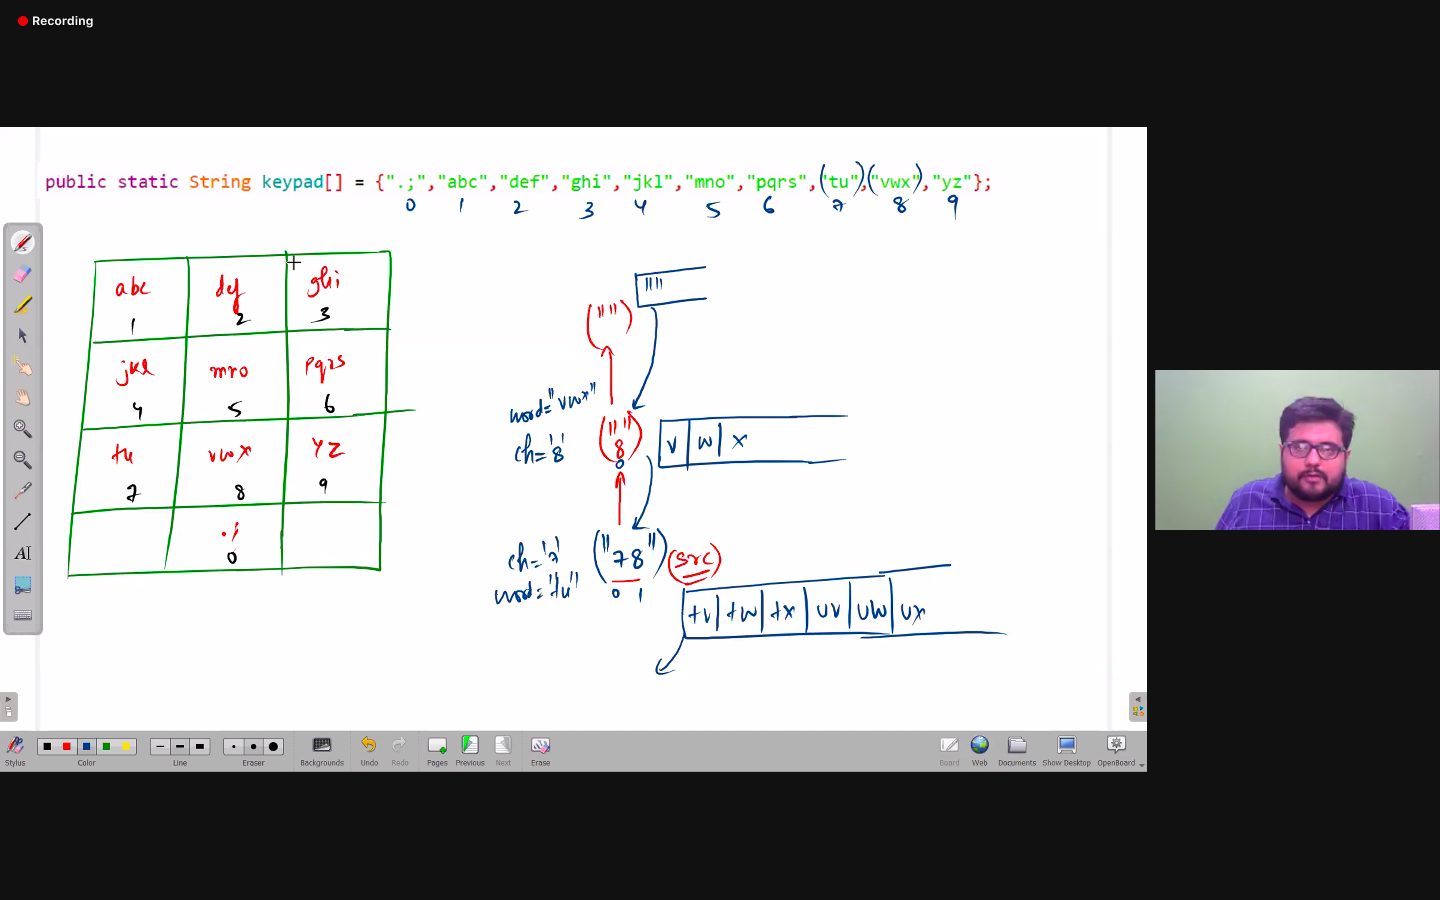 Recording
public static String keypad[] = {".;","abc","def","ghi","jkl","mno","pqrs","tu","vwx","yz"};
0 1 2 3 4 5 6 7 8 9
abc def ghi
1 2 3
jkl mno pqrs
4 5 6
tu vwx yz
7 8 9
.;
0
""
("")
word="vwx"
ch='8'
(""
8)
0
v w x
ch='7'
word="tu"
("78") (src)
0 1
tv tw tx uv uw ux
Stylus Color Line Eraser Backgrounds Undo Redo Pages Previous Next Erase Board Web Documents Show Desktop OpenBoard